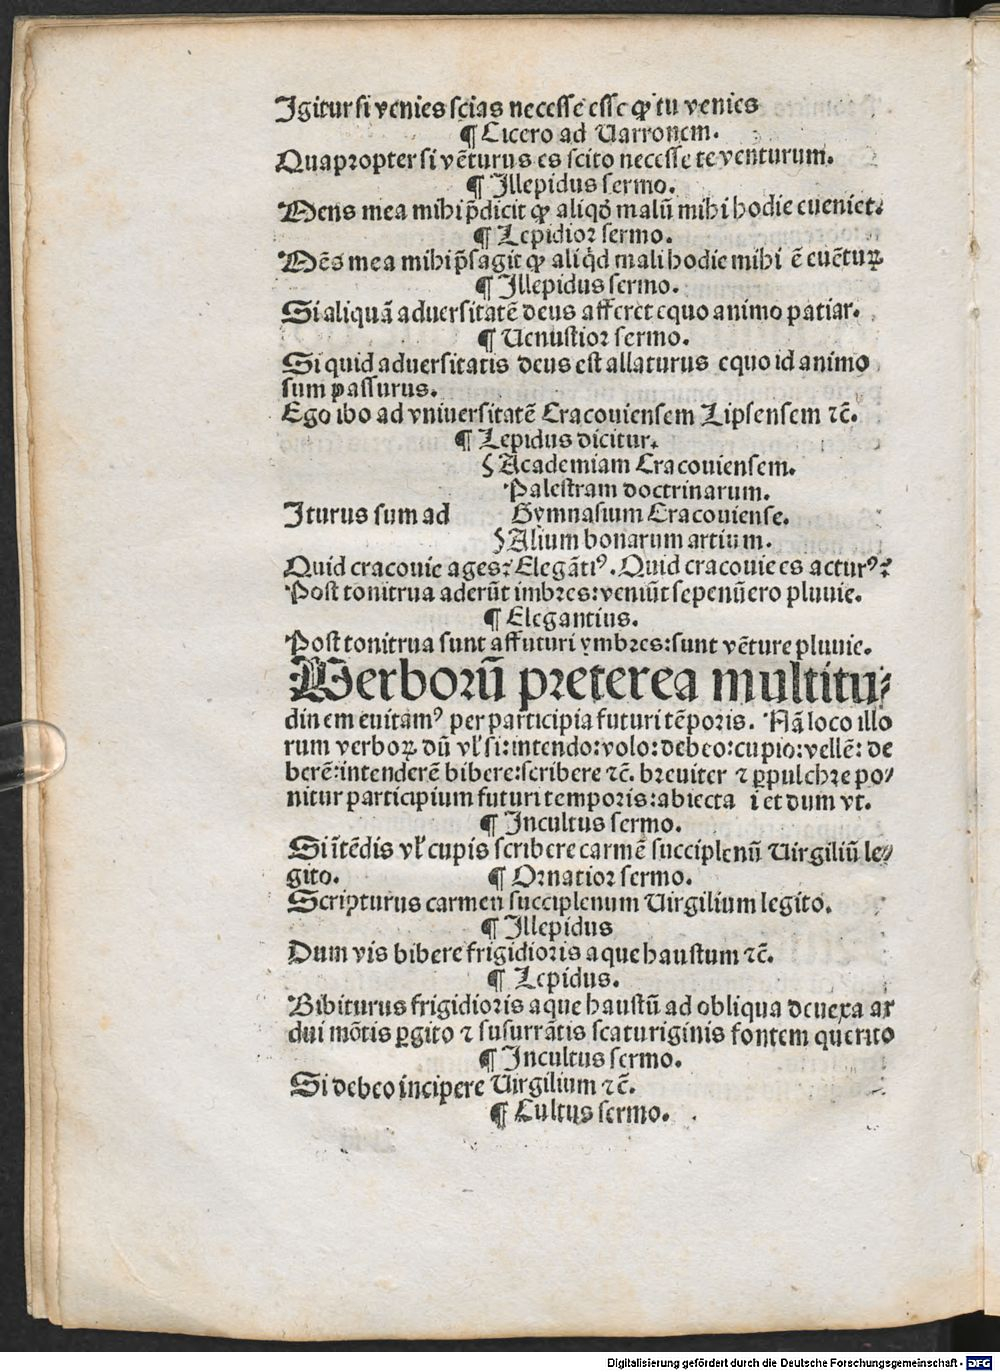 Igitur si venies scias necesse esse ꝙ tu venies
¶ Cicero ad Varronem.
Quapropter si vẽturus es scito necesse te venturum.
¶ Illepidus sermo.
Mens mea mihi p̃dicit ꝙ aliqḋ malũ mihi hodie eueniet.
¶ Lepidior sermo.
Mẽs mea mihi p̃sagit ꝙ aliq̇d mali hodie mihi ẽ euẽtuꝝ
¶ Illepidus sermo.
Si aliquã aduersitatẽ deus afferet equo animo patiar.
¶ Uenustior sermo.
Si quid aduersitatis deus est allaturus equo id animo
sum passurus.
Ego ibo ad vniuersitatẽ Cracouiensem Lipsensem ⁊c̃.
¶ Lepidus dicitur.
Academiam Cracouiensem.
Palestram doctrinarum.
Iturus sum ad Gymnasium Cracouiense.
Alium bonarum artium.
Quid cracouie ages? Elegãtiꝰ. Quid cracouie es acturꝰ?
Post tonitrua aderũt imbres: veniũt sepenũero pluuie.
¶ Elegantius.
Post tonitrua sunt affuturi ymbres: sunt vẽture pluuie.
Verborũ preterea multitu-
dinem euitamꝰ per participia futuri tẽporis. Nã loco illo
rum verboꝝ dũ vl' si: intendo: volo: debeo: cupio: vellẽ: de
berẽ: intenderẽ bibere: scribere ⁊c̃. breuiter ⁊ ꝑpulchre po-
nitur participium futuri temporis: abiecta i et dum vt.
¶ Incultus sermo.
Si ĩtẽdis vl' cupis scribere carmẽ succiplenũ Uirgiliũ le-
gito. ¶ Ornatior sermo.
Scripturus carmen succiplenum Uirgilium legito.
¶ Illepidus
Dum vis bibere frigidioris aque haustum ⁊c̃.
¶ Lepidus.
Bibiturus frigidioris aque haustũ ad obliqua deuexa ar
dui mõtis ꝑgito ⁊ susurrãtis scaturiginis fontem querito
¶ Incultus sermo.
Si debeo incipere Uirgilium ⁊c̃.
¶ Cultus sermo.
Digitalisierung gefördert durch die Deutsche Forschungsgemeinschaft - DFG